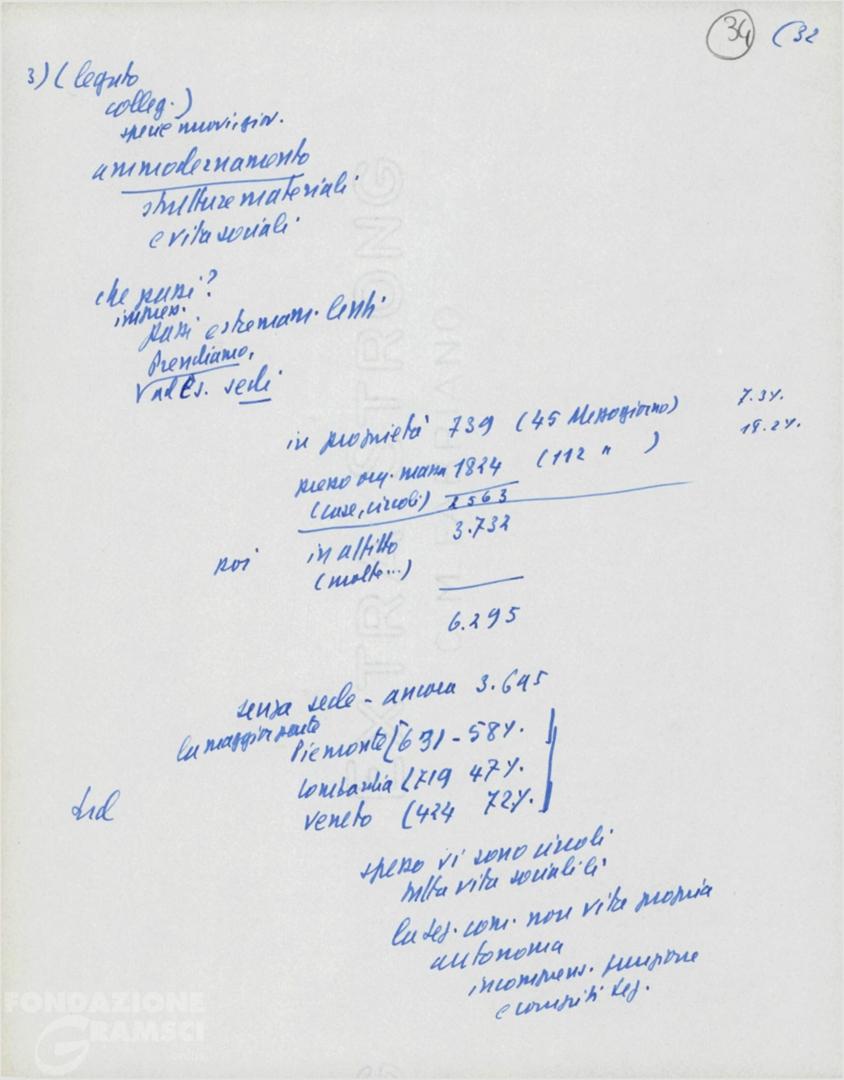 34 (32
3) (legato
colleg.)
specie nuovi iscr.
ammodernamento
strutture materiali
e vita sociali
che passi?
impress.
passi estremam. lenti
Prendiamo,
ad es. sedi
in proprietà 739 (45 Mezzogiorno) 7.3%.
presso org. massa 1824 (112 " ) 18.2%.
(case, circoli) 2563
poi in affitto 3.732
(molte...)
6.295
senza sede - ancora 3.695
la maggior parte
Piemonte (631 - 58%.
Lombardia (719 47%.
Veneto (424 72%.
Sud
spesso vi sono circoli
tutta vita sociali lì
la sez. com. non vita propria
autonoma
incomprens. funzione
e compiti sez.
EXTRA STRONG
FONDAZIONE
GRAMSCI